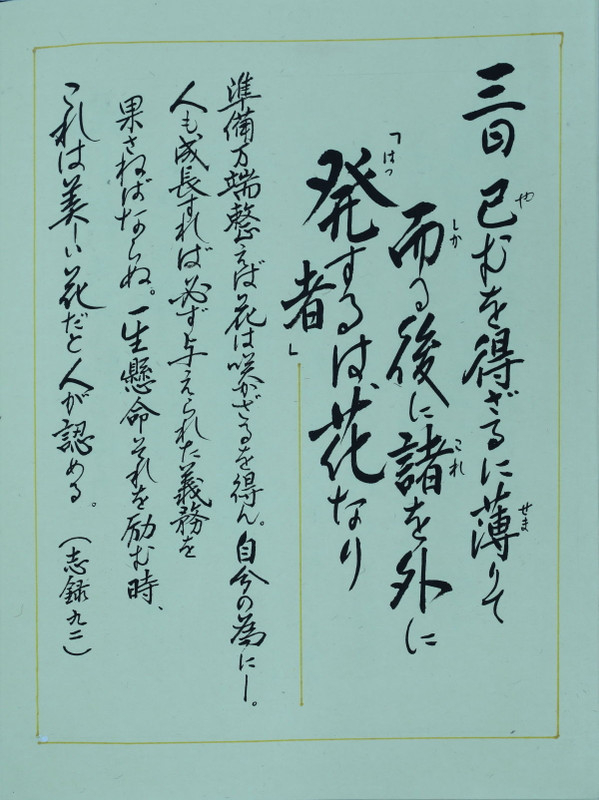 三日 已むを得ざるに薄りて
や
せま
而る後に諸を外に
しか
これ
「発するは、花なり
はっ
者」
準備万端整えば花は咲かざるを得ん。自分の為にー。
人も成長すれば必ず与えられた義務を
果さねばならぬ。一生懸命それを励む時、
これは美しい花だと人が認める。(志録九二)